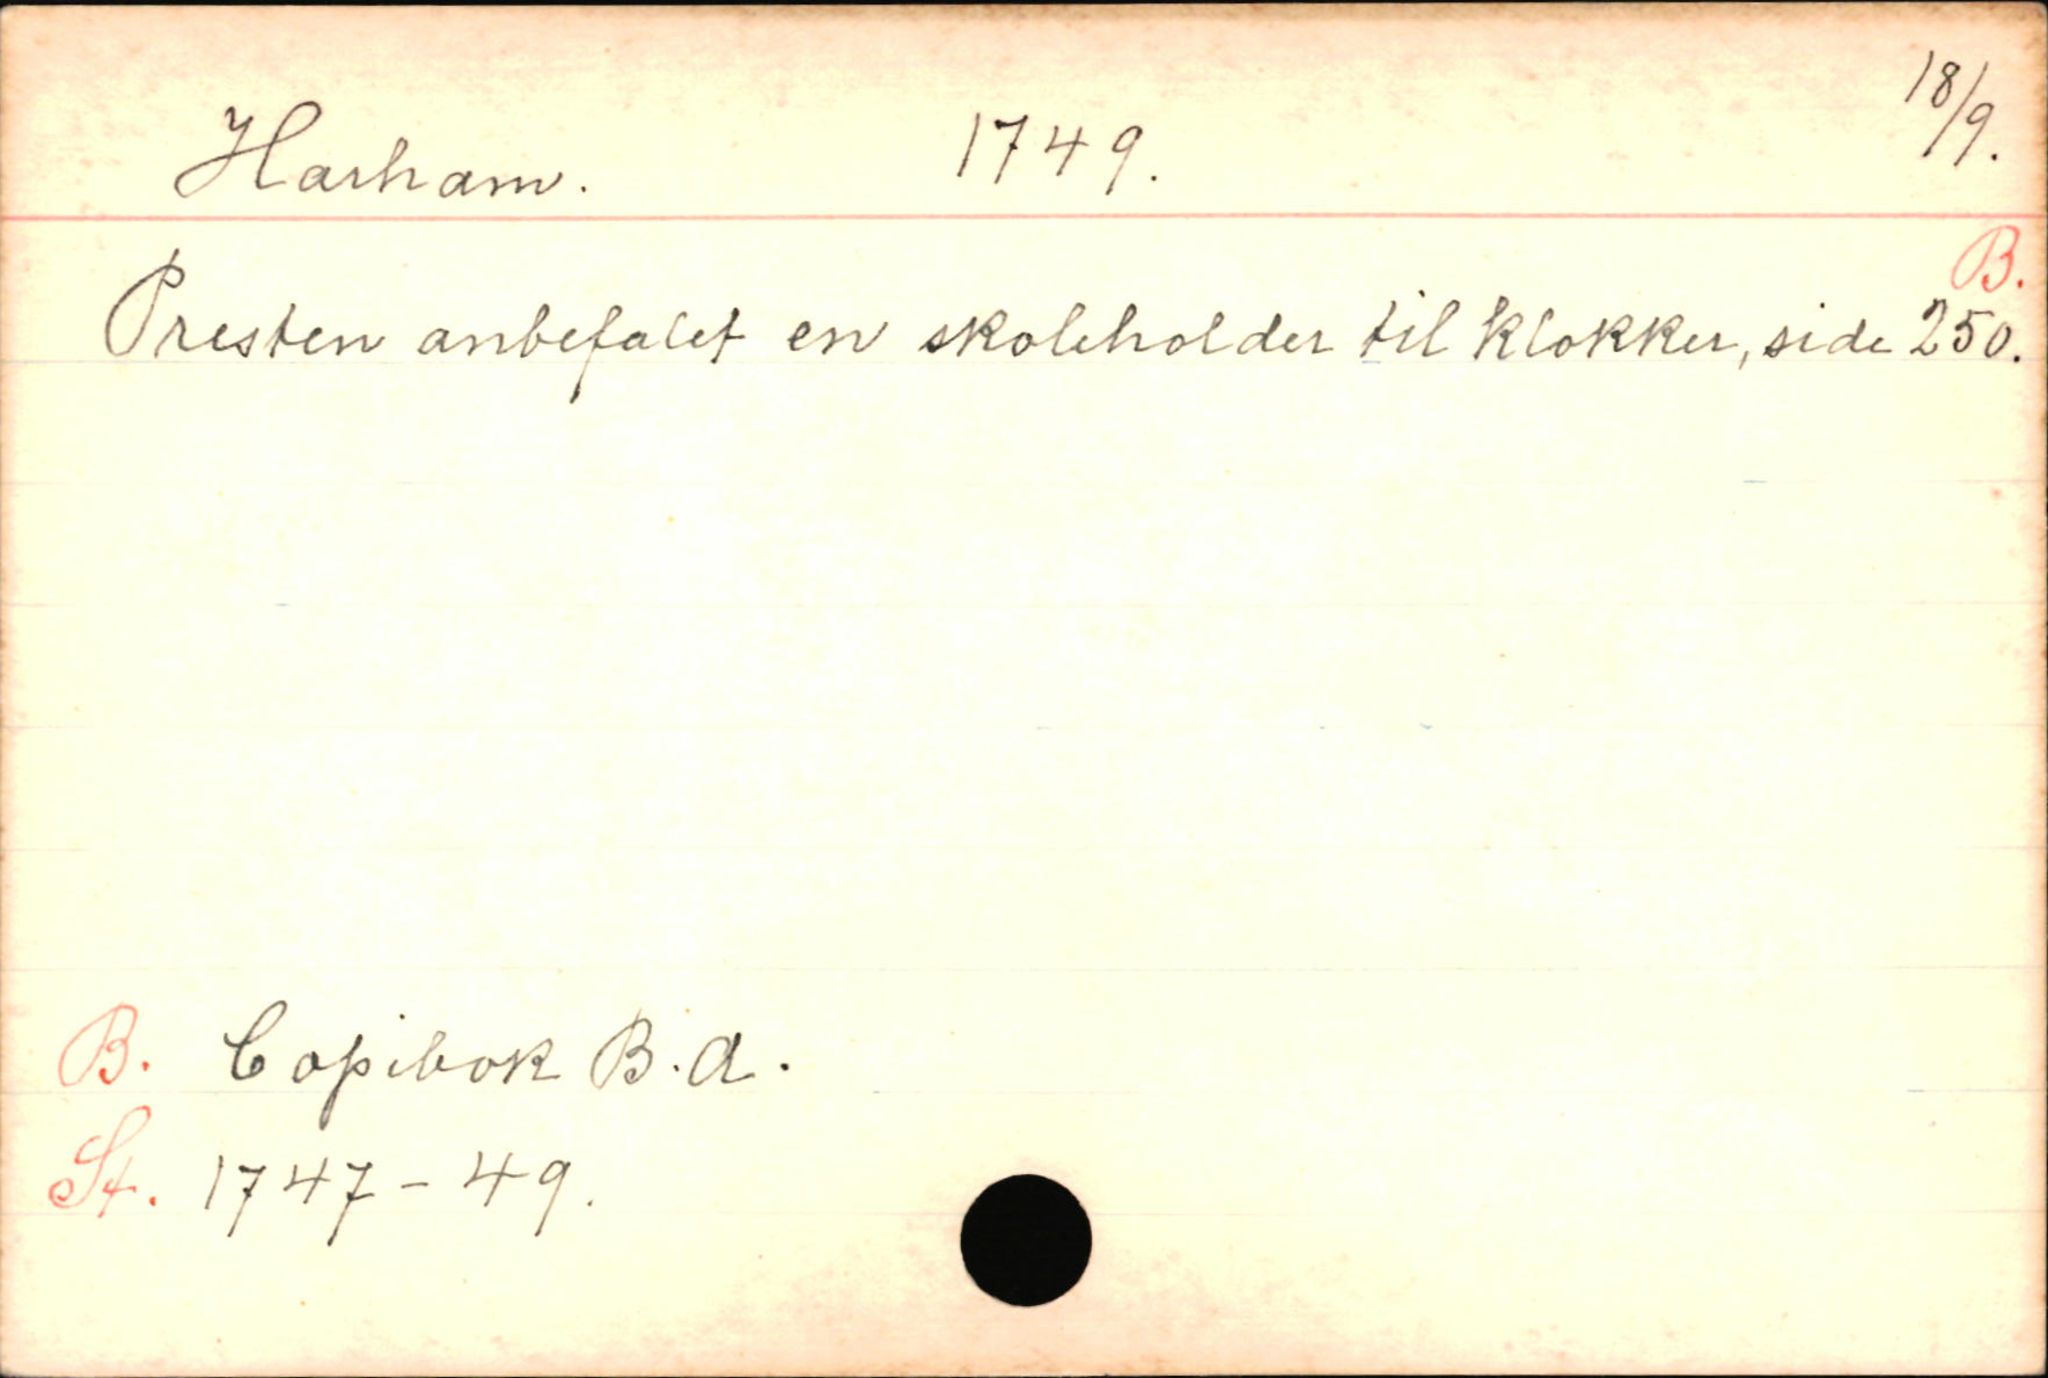 Harham. 1749. 18/9.
B.
Presten anbefalet en skoleholder til klokker, side 250.
B. Copibok B.A.
St. 1747-49.